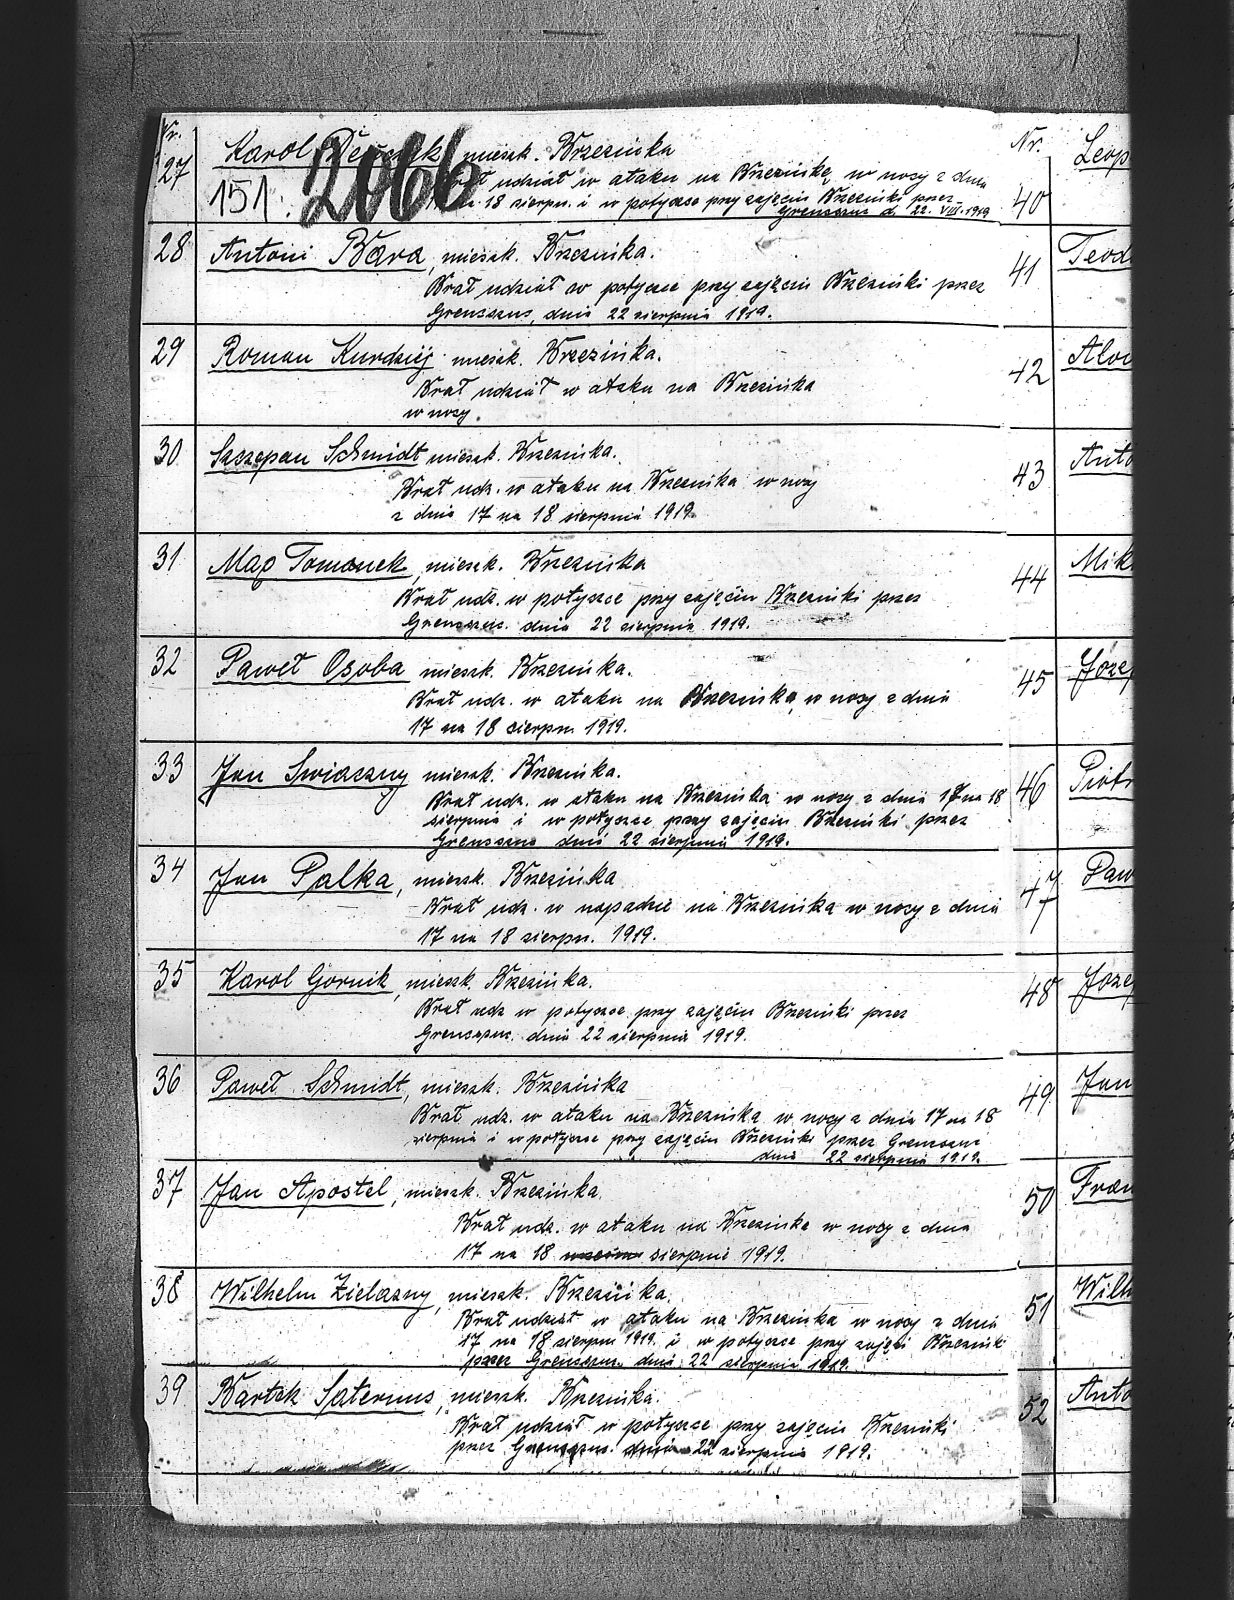 Nr.
27 Karol mieszk. Brzezinka
151. 2066
Brał udział w ataku na Brzezinkę w nocy z dnia
18 sierpn. i w potyczce przy zajęciu Brzezinki przez
Grensszuc d. 22. VIII. 1919
28 Antoni Bara, mieszk. Brzezinka.
Brał udział w potyczce przy zajęciu Brzezinki przez
Grensszus, dnia 22 sierpnia 1919.
29 Roman Kurdziej mieszk. Brzezinka.
Brał udział w ataku na Brzezinka
w nocy.
30 Szczepan Schmidt mieszk. Brzezinka.
Brał udz. w ataku na Brzezinka w nocy
z dnia 17 na 18 sierpnia 1919.
31 Map Tomanek, mieszk. Brzezinka
Brał udz. w potyczce przy zajęciu Brzezinki przez
Grensszuc. dnia 22 sierpnia 1919.
32 Paweł Osoba mieszk. Brzezinka.
Brał udz. w ataku na Brzezinka, w nocy z dnia
17 na 18 sierpn. 1919.
33 Jan Swiaczny mieszk. Brzezinka.
Brał udz. w ataku na Brzezinka w nocy z dnia 17 na 18
sierpnia i w potyczce przy zajęciu Brzezinki przez
Grensszuc dnia 22 sierpnia 1919.
34 Jan Palka, mieszk. Brzezinka
Brał udz. w napadzie na Brzezinka w nocy z dnia
17 na 18 sierpn. 1919.
35 Karol Gornik, mieszk. Brzezinka.
Brał udz w potyczce przy zajęciu Brzezinki przez
Grensszuc. dnia 22 sierpnia 1919.
36 Paweł Schmidt, mieszk. Brzezinka
Brał udz. w ataku na Brzezinką w nocy z dnia 17 na 18
sierpnia i w potyczce przy zajęciu Brzezinki przez Grensszuc
dnia 22 sierpnia 1919.
37 Jan Apostel, mieszk. Brzezinka.
Brał udz. w ataku na Brzezinka w nocy z dnia
17 na 18 sierpnia 1919.
38 Wilhelm Zielazny, mieszk. Brzezinka.
Brał udział w ataku na Brzezinka w nocy z dnia
17 na 18 sierpn 1919. i w potyczce przy zajęci Brzezinki
przez Grensszuc. dnia 22 sierpnia 1919.
39 Bartek Saternus, mieszk. Brzezinka.
Brał udział w potyczce przy zajęciu Brzezinki
przez Grensszuc. dnia 22 sierpnia 1919.
Nr.
40 Leop
41 Teod
42
43 Anto
44 Mik
45 Józef
46 Piotr
47 Paw
48 Jozef
49 Jan
50 Fran
51 Wilh
52 Anto